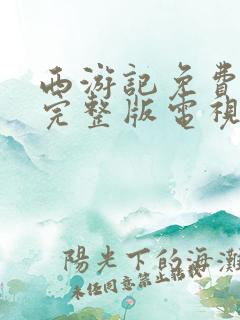 西游記免費
完整版電視
陽光下的海灘
未经同意禁止转载